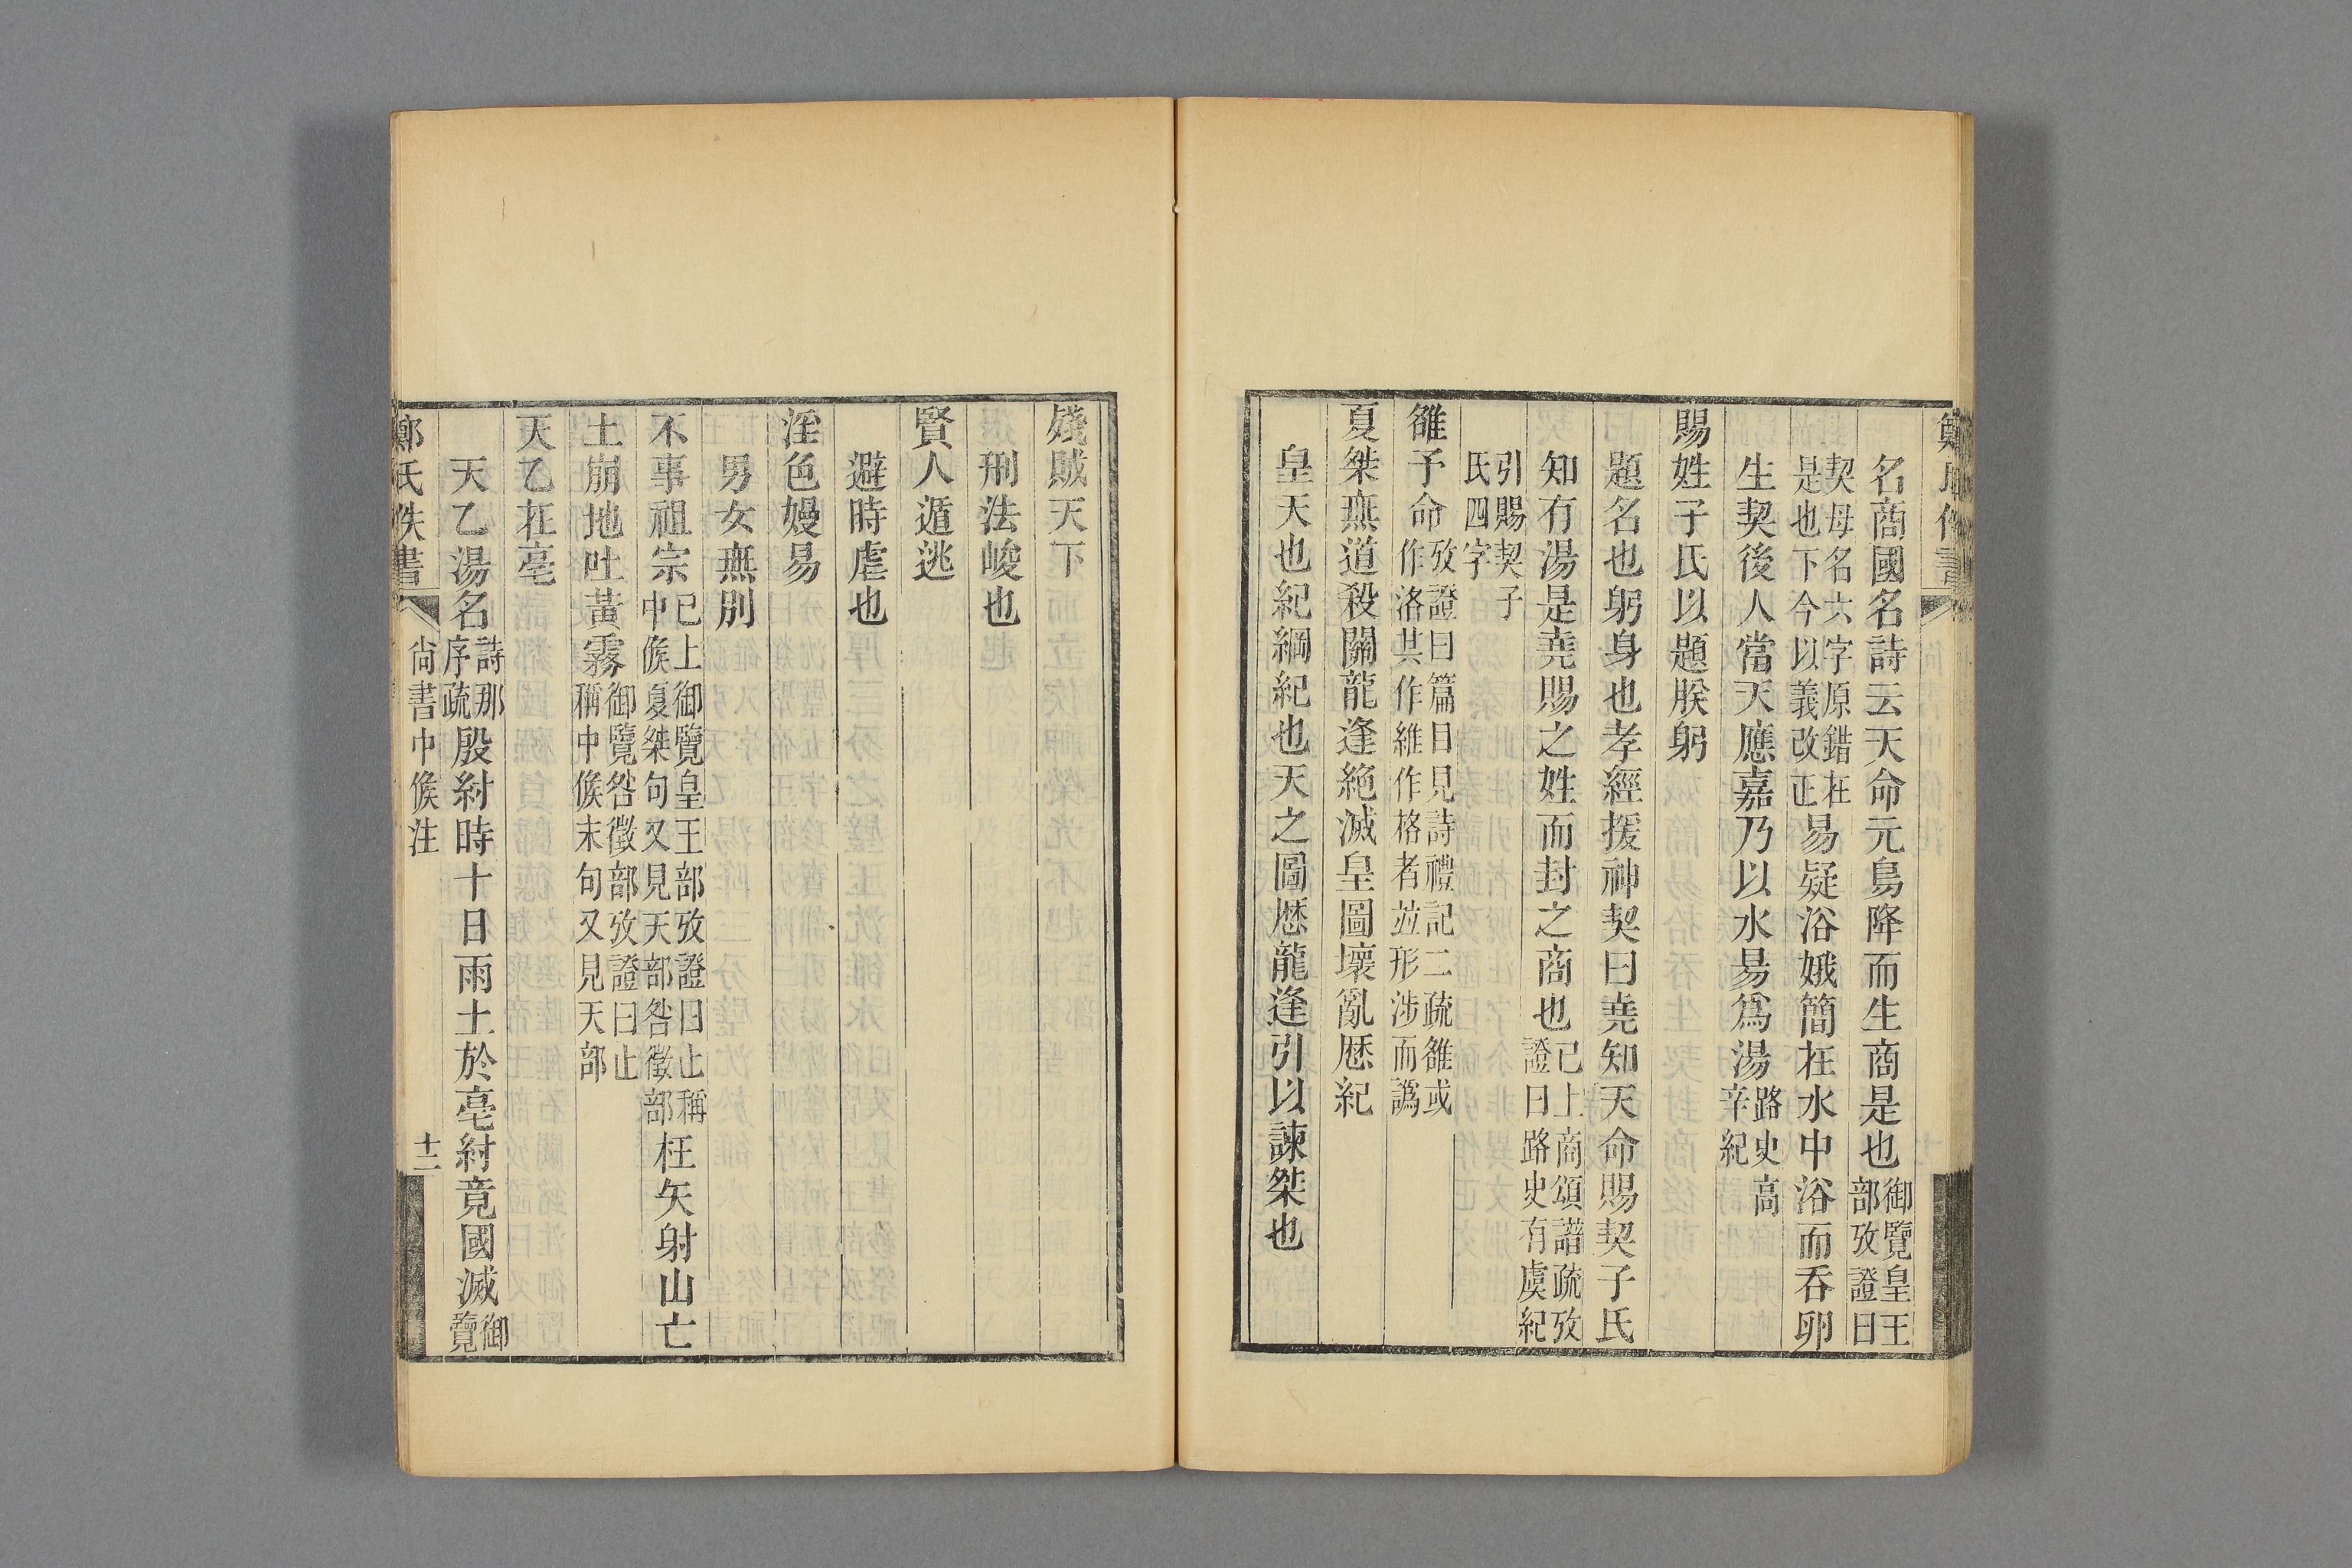 名商國名詩云天命元鳥降而生商是也御覽皇王部攷證曰
契母名六字原錯在是也下今以義改正易疑浴娥簡在水中浴而吞卵
生契後人當天應嘉乃以水易爲湯路史高辛紀
賜姓子氏以題朕躬
題名也躬身也孝經援神契曰堯知天命賜契子氏
知有湯是堯賜之姓而封之商也已上商頌譜疏攷證曰路史有虞紀
引賜契子氏四字
雒予命攷證曰篇目見詩禮記二疏雒或作洛其作維作格者竝形涉而譌
夏桀無道殺關龍逢絶滅皇圖壞亂厯紀
皇天也紀綱紀也天之圖厯龍逢引以諫桀也
殘賊天下
刑法峻也
賢人遁逃
避時虐也
淫色嫚易
男女無別
不事祖宗已上御覽皇王部攷證曰止稱中候夏桀句又見天部咎徵部枉矢射山亡
土崩地吐黃霧御覽咎徵部攷證曰止稱中候末句又見天部
天乙在亳
天乙湯名詩那序疏殷紂時十日雨土於亳紂竟國滅御覽
鄭氏佚書
尙書中候注
十二